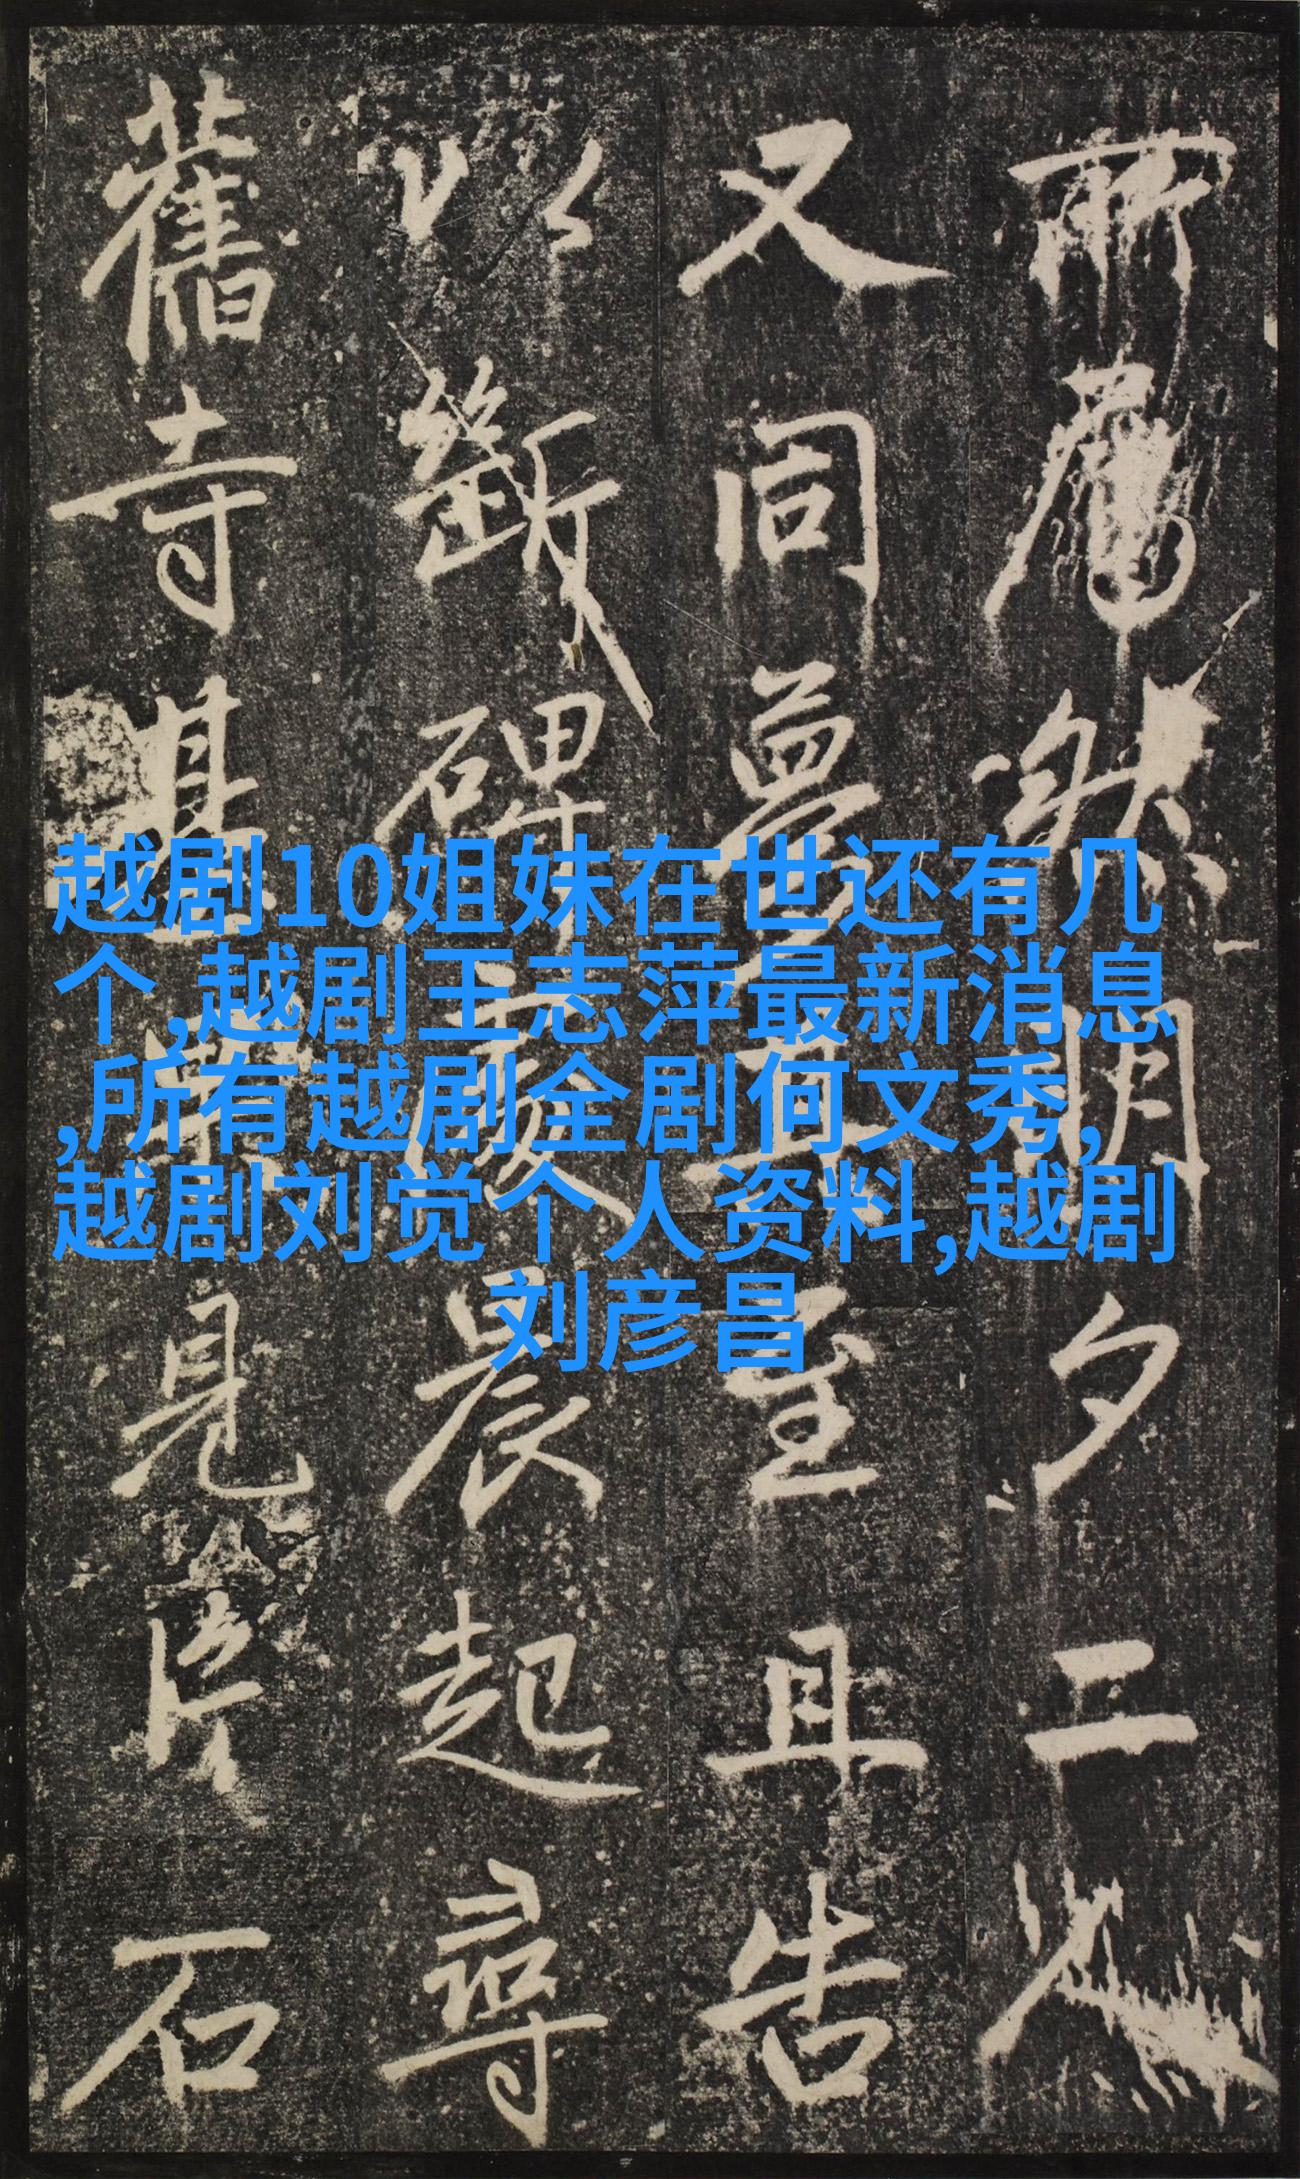 越剧10姐妹在世还有几
个,越剧王志萍最新消息
,所有越剧全剧何文秀,
越剧刘觉个人资料,越剧
刘彦昌
然明夕二
又同夢至且告
以斷碑處晨起尋
舊寺基果見片石